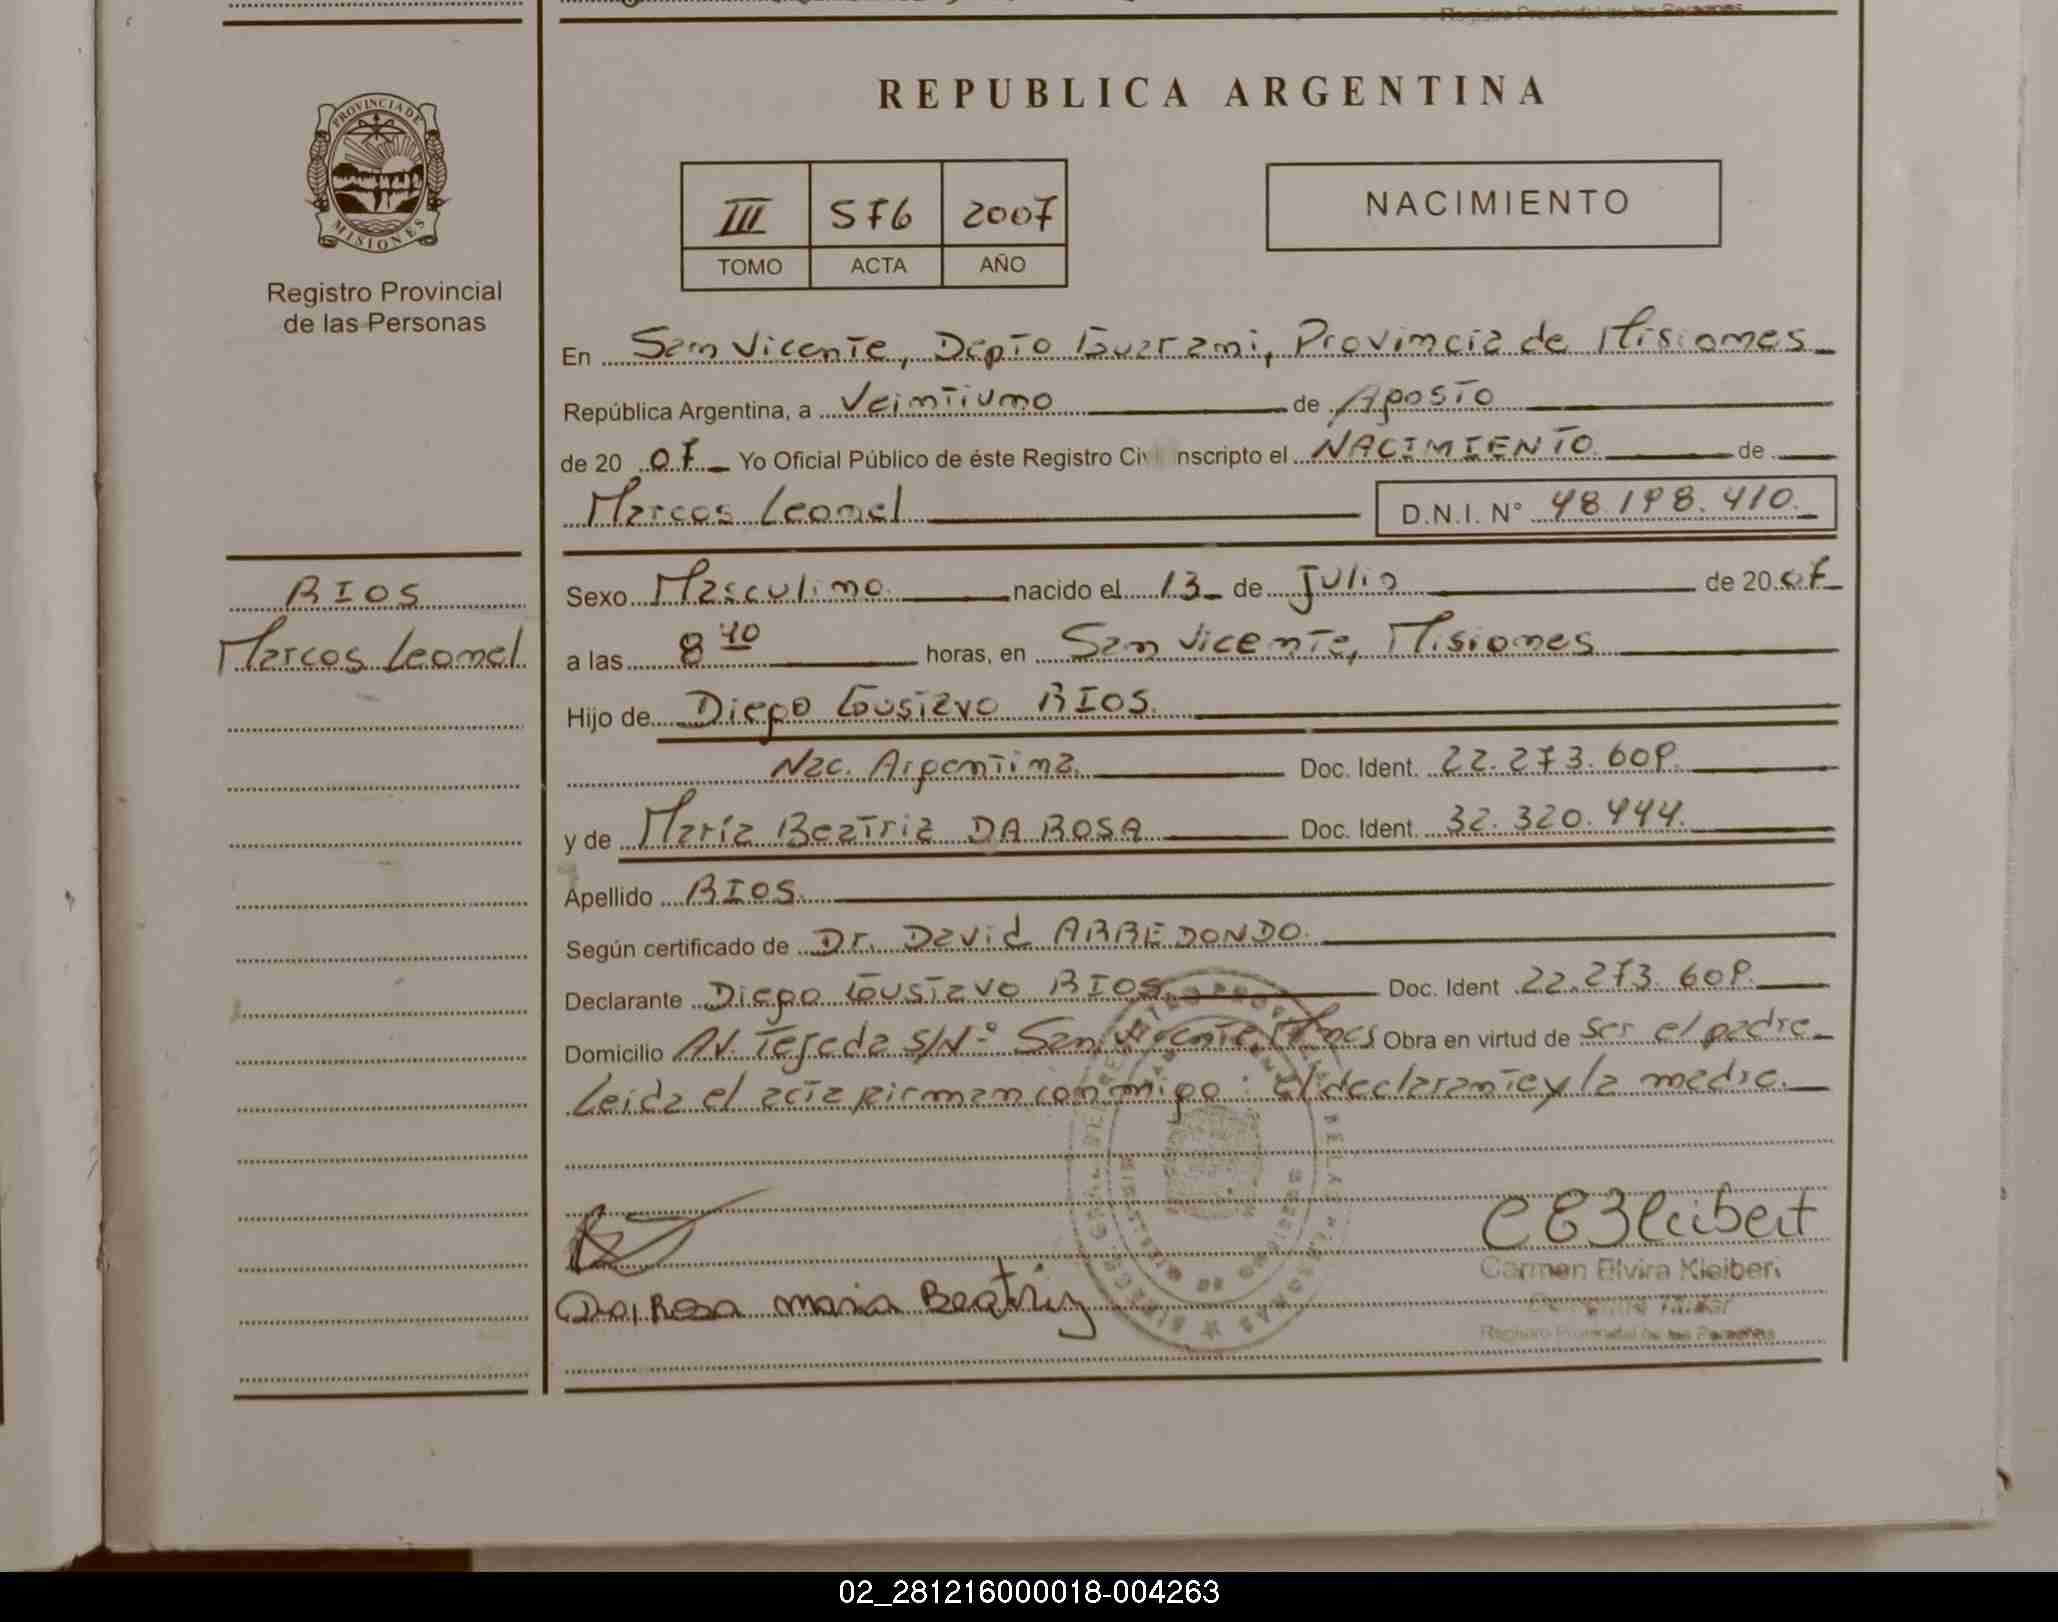 REPUBLICA ARGENTINA
PROVINCIA DE
MISIONES
Registro Provincial
de las Personas
III 576 2007
TOMO ACTA AÑO
NACIMIENTO
En San Vicente, Depto Guarani, Provincia de Misiones
República Argentina, a Veintiuno de Agosto
de 20 07 Yo Oficial Público de éste Registro Civ nscripto el NACIMIENTO de
Marcos Leonel D.N.I. N° 48.198.410.
RIOS
Marcos Leonel
Sexo Masculino nacido el 13 de Julio de 20 07
a las 8 40 horas, en San Vicente, Misiones
Hijo de Diego Gustavo RIOS.
Nac. Argentina. Doc. Ident. 22.273.609.
y de María Beatriz DA ROSA Doc. Ident. 32.320.444.
Apellido RIOS.
Según certificado de Dr. David ARREDONDO.
Declarante Diego Gustavo RIOS. Doc. Ident 22.273.609.
Domicilio AV. Tejeda S/N° San Vicente, Mnes Obra en virtud de Ser el padre
Leida el acta firman conmigo: el declarante y la madre.
C E Kleibert
Carmen Elvira Kleibert
Registro Provincial de las Personas
Da Rosa maria Beatriz
02_281216000018-004263